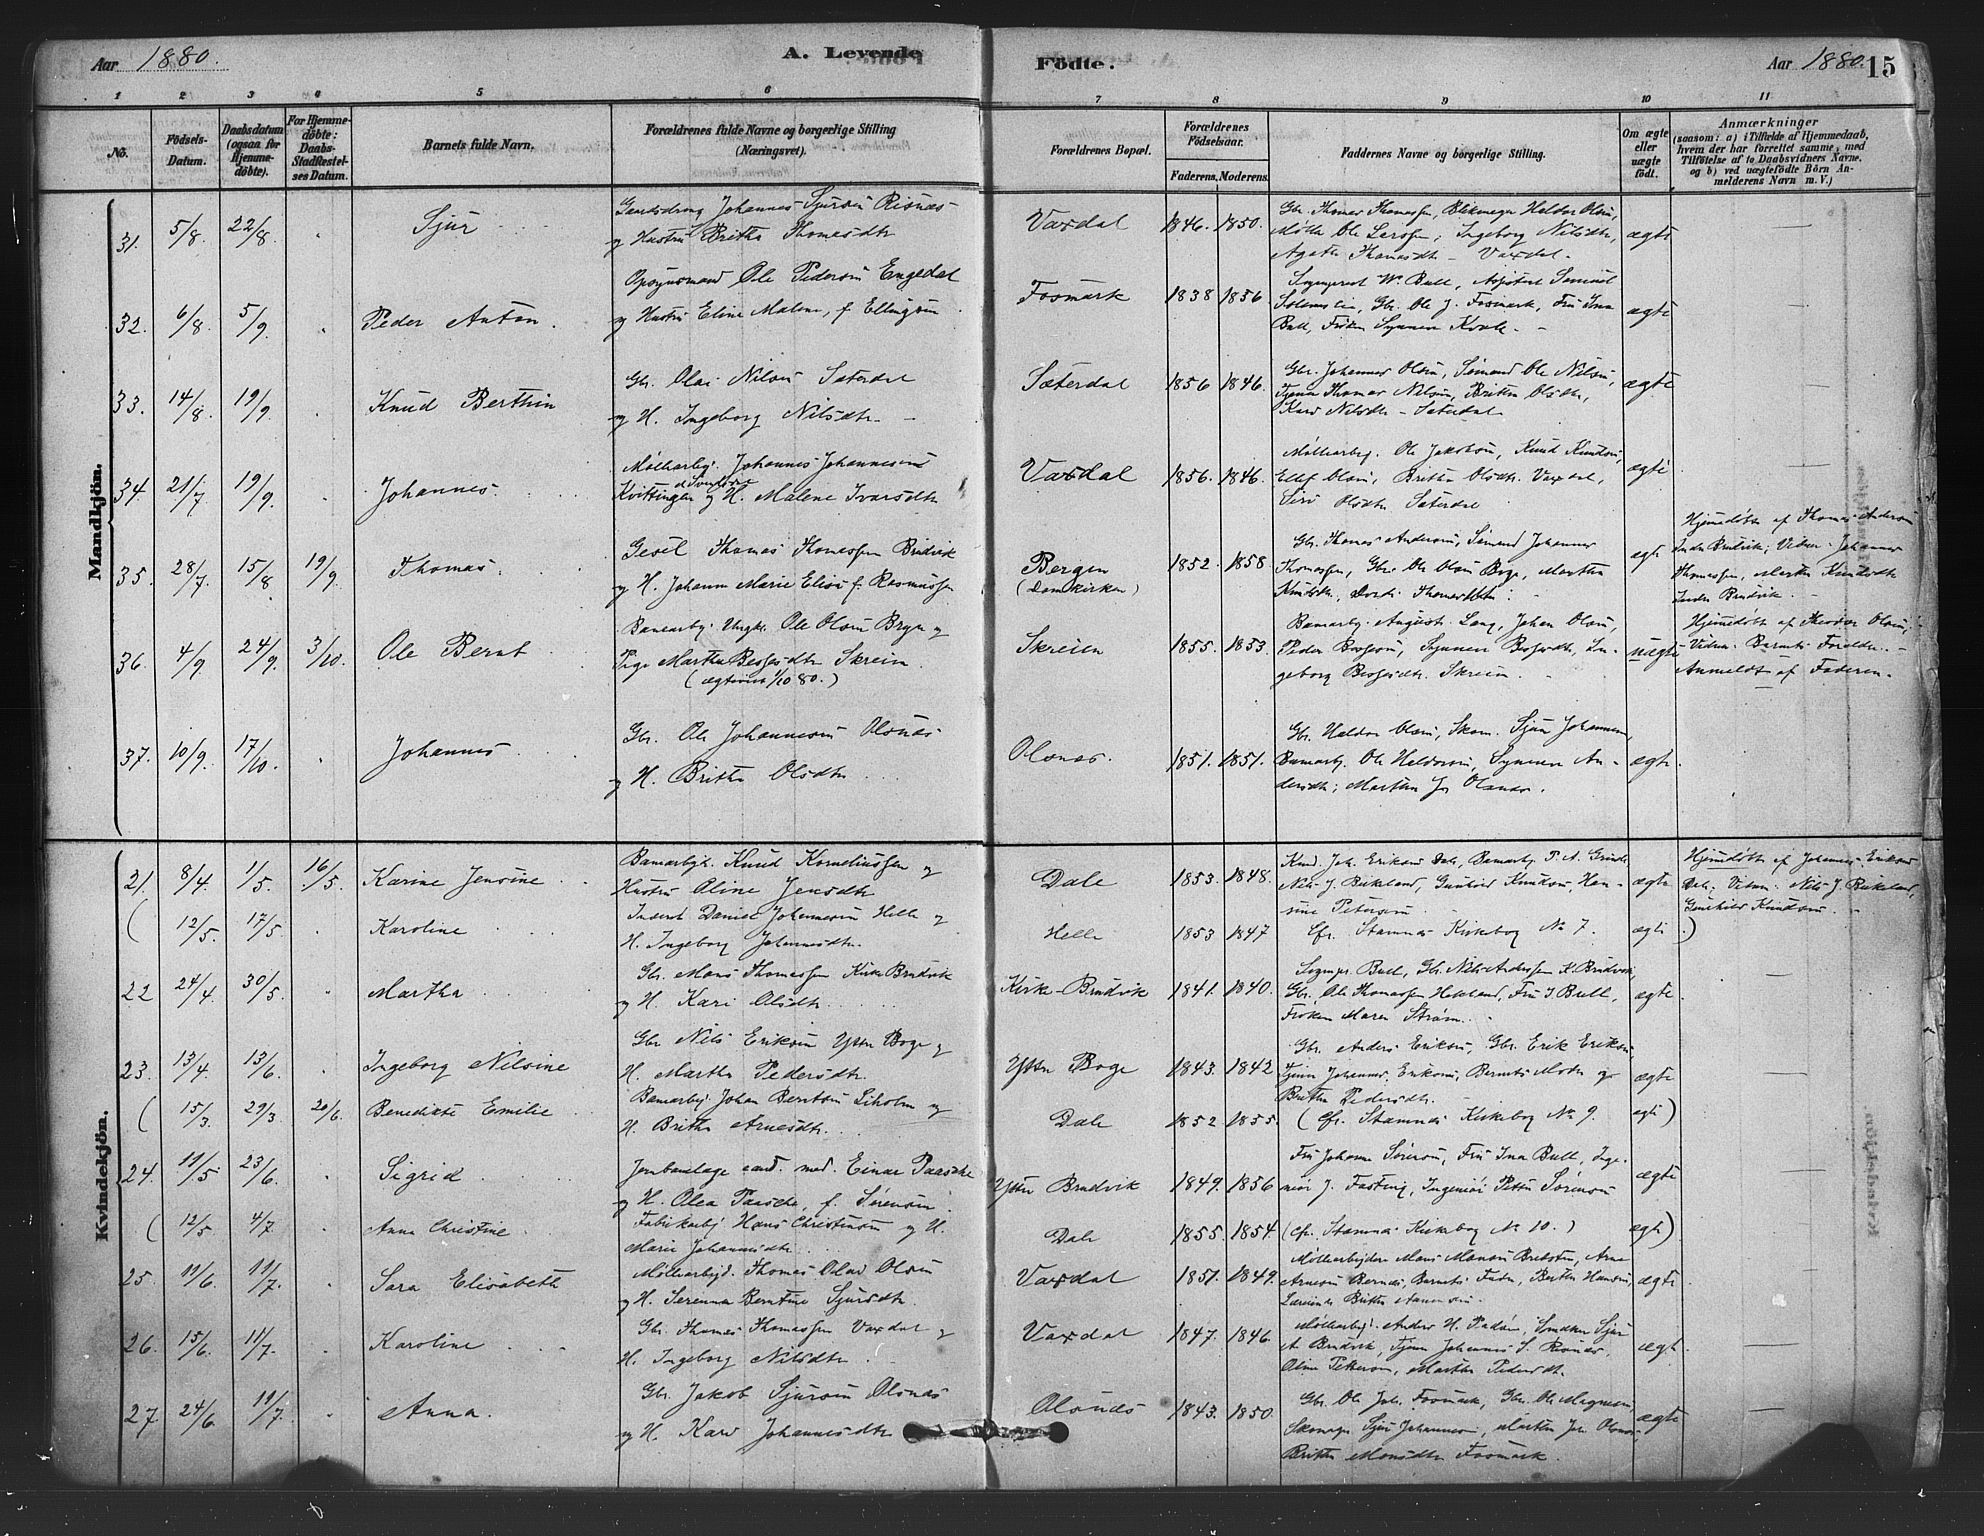 Aar 1880. A. Levende Födte. Aar 1880. 15
1 2 3 4 5 6 7 8 9 10 11
No. Födsels-Datum. Daabsdatum (ogsaa for Hjemmedöbte). For Hjemmedöbte: Daabs-Stadfæstelses Datum. Barnets fulde Navn. Forældrenes fulde Navne og borgerlige Stilling (Næringsvei). Forældrenes Bopæl. Forældrenes Födselsaar. Faderens. Moderens. Faddernes Navne og borgerlige Stilling. Om ægte eller uægte födt. Anmærkninger (saasom: a) i Tilfælde af Hjemmedaab, hvem der har forrettet samme, med Tilföielse af to Daabsvidners Navne, og b) ved uægtefödte Börn Anmelderens Navn m. V.)
Mandkjön.
31. 5/8. 22/8. Sjur Johannes Sjursen Risnæs
og Hustru Britha Thomasdtr Vaxdal 1846. 1850. Gbr. Thomas Thomassen, Haldor Olsen,
Ole Larssen, Ingeborg Nilsdtr,
Agatha Thomasdtr - Vaxdal. ægte
32. 6/8. 5/9. Peder Anton. Opsynsmand Ole Pedersen Engedal
og Hustru Eline Malene, f. Ellingsen Fosmark 1838 1856 Sogneprest W. Bull, Samuel
Gbr. Ole J. Fosmark, Fru Ina
Bull, Frøken Synneva Kvale. ægte
33. 14/8. 19/9. Knud Berthin Gbr. Olai Nilsen Sæterdal
og H. Ingeborg Nilsdtr. Sæterdal 1856 1846. Gbr. Johannes Olsen, Sømand Ole Nilsen,
Tjener Thomas Nilsen, Britha Olsdtr,
Kari Nilsdtr - Sæterdal. ægte
34 21/7 19/9. Johannes. Møllearbj. Johannes Johannesen
Kvittingen og H. Malene Ivarsdtr Vaxdal 1856. 1846. Møllearbg. Ole Jakobsen, Knud Knudsen,
Ellef Olsen, Britha Olsdtr. Vaxdal,
Siri Olsdtr Sæterdal ægte
35. 28/7. 15/8. 19/9. Thomas. Gesel Thomas Thomassen Brudvik
og H. Johanna Marie Elise f. Rasmussen Bergen
(Domkirken) 1852. 1858. Gbr. Thomas Andersen, Sømand Johannes
Thomassen, Gbr. Ole Olsen Boge, Martha
Knudsdtr, Dordi Thomasdtr. ægte Hjemmedöbt af Thomas Andersen
Indre Brudvik; Vidner: Johannes
Thomassen, Martha Knudsdtr
Indre Brudvik.
36. 4/9. 24/9. 3/10. Ole Bernt Banearbj. Ungk. Ole Olsen Bryn og
Pige Martha Bessesdtr Skreien.
(ægteviet 1/10 80.) Skreien 1855. 1853. Banearbj. August Lang, Johan Olsen,
Peder Bessesen, Synneva Bessesdtr, In-
geborg Bessesdtr. Skreien. uægte Hjemmedöbt af Theodor Olsen,
Vidner: Barnets Forældre. -
Anmeldt af Faderen.
37. 10/9. 17/10. Johannes Gbr. Ole Johannesen Olsnæs
og H. Britha Olsdtr Olsnæs. 1851. 1851. Gbr. Haldor Olsen, Skom. Sjur Johannesen,
Banearbj. Ole Haldorsen, Synneva An-
dersdtr; Martha Js Olsnæs. ægte
Kvindekjön.
21. 8/4. 1/5. 16/5. Karine Jensine Banearbejd. Knud Korneliussen og
Hustru Oline Jensdtr Dale 1853. 1848. Joh. Eriksen Dale, Banearbj. P. A.
Nils J. Birkeland, Gunhild Knudsen, Han-
sine Petersen. ægte Hjemmedöbt af Johannes Eriksen
Dale; Vidner: Nils J. Birkeland,
Gunhild Knudsen.
( 12/5. 17/5. Karoline Inderst Daniel Johannesen Helle og
H. Ingeborg Johannesdtr. Helle 1853 1847 Cfr. Stamnæs Kirkebog No 7. ægte )
22 24/4. 30/5. Martha Gbr. Mons Thomassen Kirke Brudvik
og H. Kari Olsdtr. Kirke-Brudvik 1841. 1840. Sognepr. Bull, Gbr. Nils Anderssen K. Brudvik,
Gbr. Ole Thomassen Hekland, Fru I. Bull,
Frøken Maren Strøm. ægte
23. 13/4. 13/6. Ingeborg Nilsine Gbr. Nils Eriksen Yttre Boge og
H. Martha Pedersdtr. Yttre Boge 1843. 1842 Gbr. Anders Eriksen, Gbr. Erik Eriksen,
Tjener Johannes Eriksen, Barnets Moder og
Britha Pedersdtr. ægte
( 15/3. 29/3. 20/6. Benedikte Emilie Banearbej. Johan Berntsen Liholm og
H. Britha Arnesdtr. Dale 1852 1855. (Cfr. Stamnæs Kirkebog No 9. ægte )
24. 11/5 23/6. Sigrid Jernbanelæge cand. med. Einar Paasche
og H. Olea Paasche, f. Sørensen. Yttre Brudvik 1849. 1856 Fru Johanne Sørensen, Fru Ina Bull, Inge-
niør J. Fasting, Ingeniør Petter Sørensen ægte
( 12/5 4/7. Anne Christine Fabrikarbj. Hans Christensen og H.
Marie Johannesdtr. Dale 1855. 1854. (Cfr. Stamnæs Kirkebog No 10.) ægte )
25. 11/6. 11/7. Sara Elisabeth Møllearbejd. Thomas Olai Olsen
og H. Serenna Berntine Sjursdtr. Vaxdal 1851. 1849. Møllearbejder Mons Monsen, Arne
Arnesen Bernæs, Barnets Fader, Berthe Hansen,
Lærerinde Britha ægte
26. 15/6. 11/7. Karoline Gbr. Thomas Thomassen Vaxdal og
H. Ingeborg Nilsdtr. Vaxdal 1847. 1846. Møllearbej. Anders H. Smeden Sjur
A. Brudvik, Tjener Johannes S. Risnæs,
Oline Pettersen, Martha Pedersdtr. ægte
27 24/6. 11/7. Anna. Gbr. Jakob Sjursen Olsnæs
og H. Kari Johannesdtr. Olsnæs 1843. 1850. Gbr. Ole Joh. Fosmark, Gbr. Ole Magnesen,
Skomager Sjur Johannesen, Martha Joh. Olsnæs,
Britha Monsdtr Fosmark. ægte